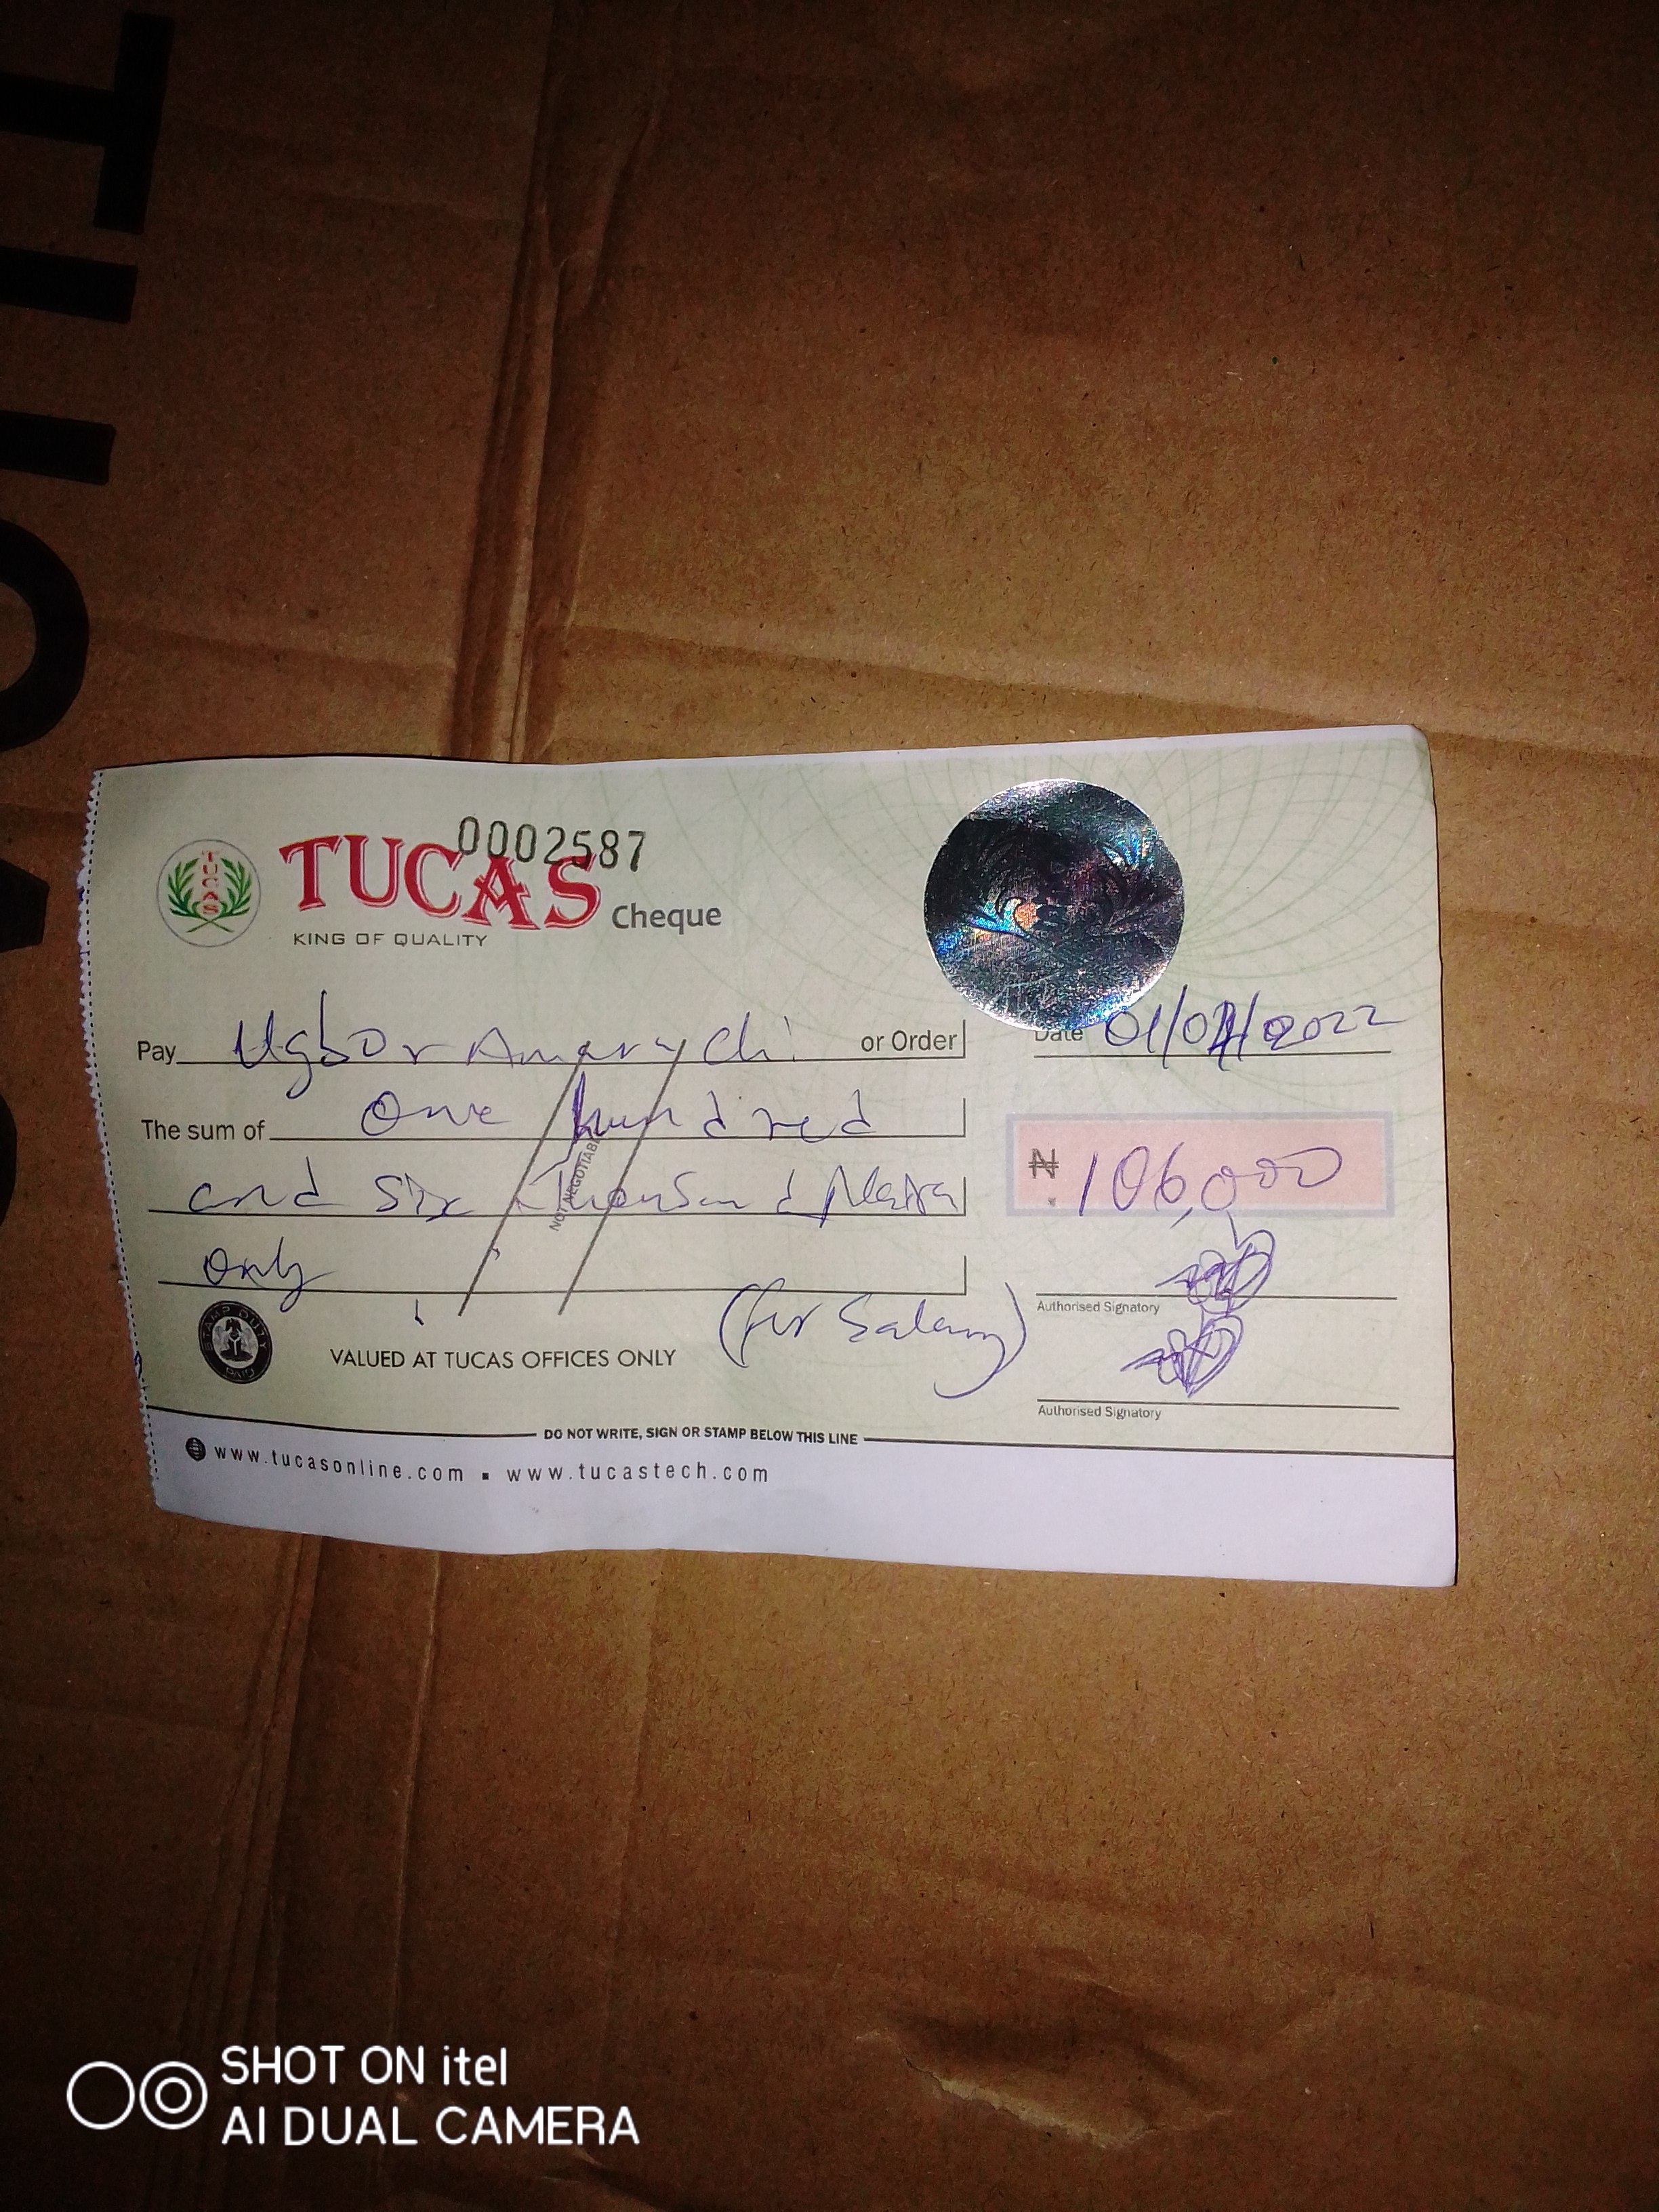 0002587
TUCAS Cheque
KING OF QUALITY
TUCAS
Pay Ugbor Amarachi or Order
Date 01/04/2022
The sum of One hundred
and Six Thousand Naira
₦ 106,000
only
NOT NEGOTIABLE
(for Salary)
Authorised Signatory
STAMP DUTY PAID
VALUED AT TUCAS OFFICES ONLY
Authorised Signatory
DO NOT WRITE, SIGN OR STAMP BELOW THIS LINE
www.tucasonline.com ▪ www.tucastech.com
SHOT ON itel
AI DUAL CAMERA